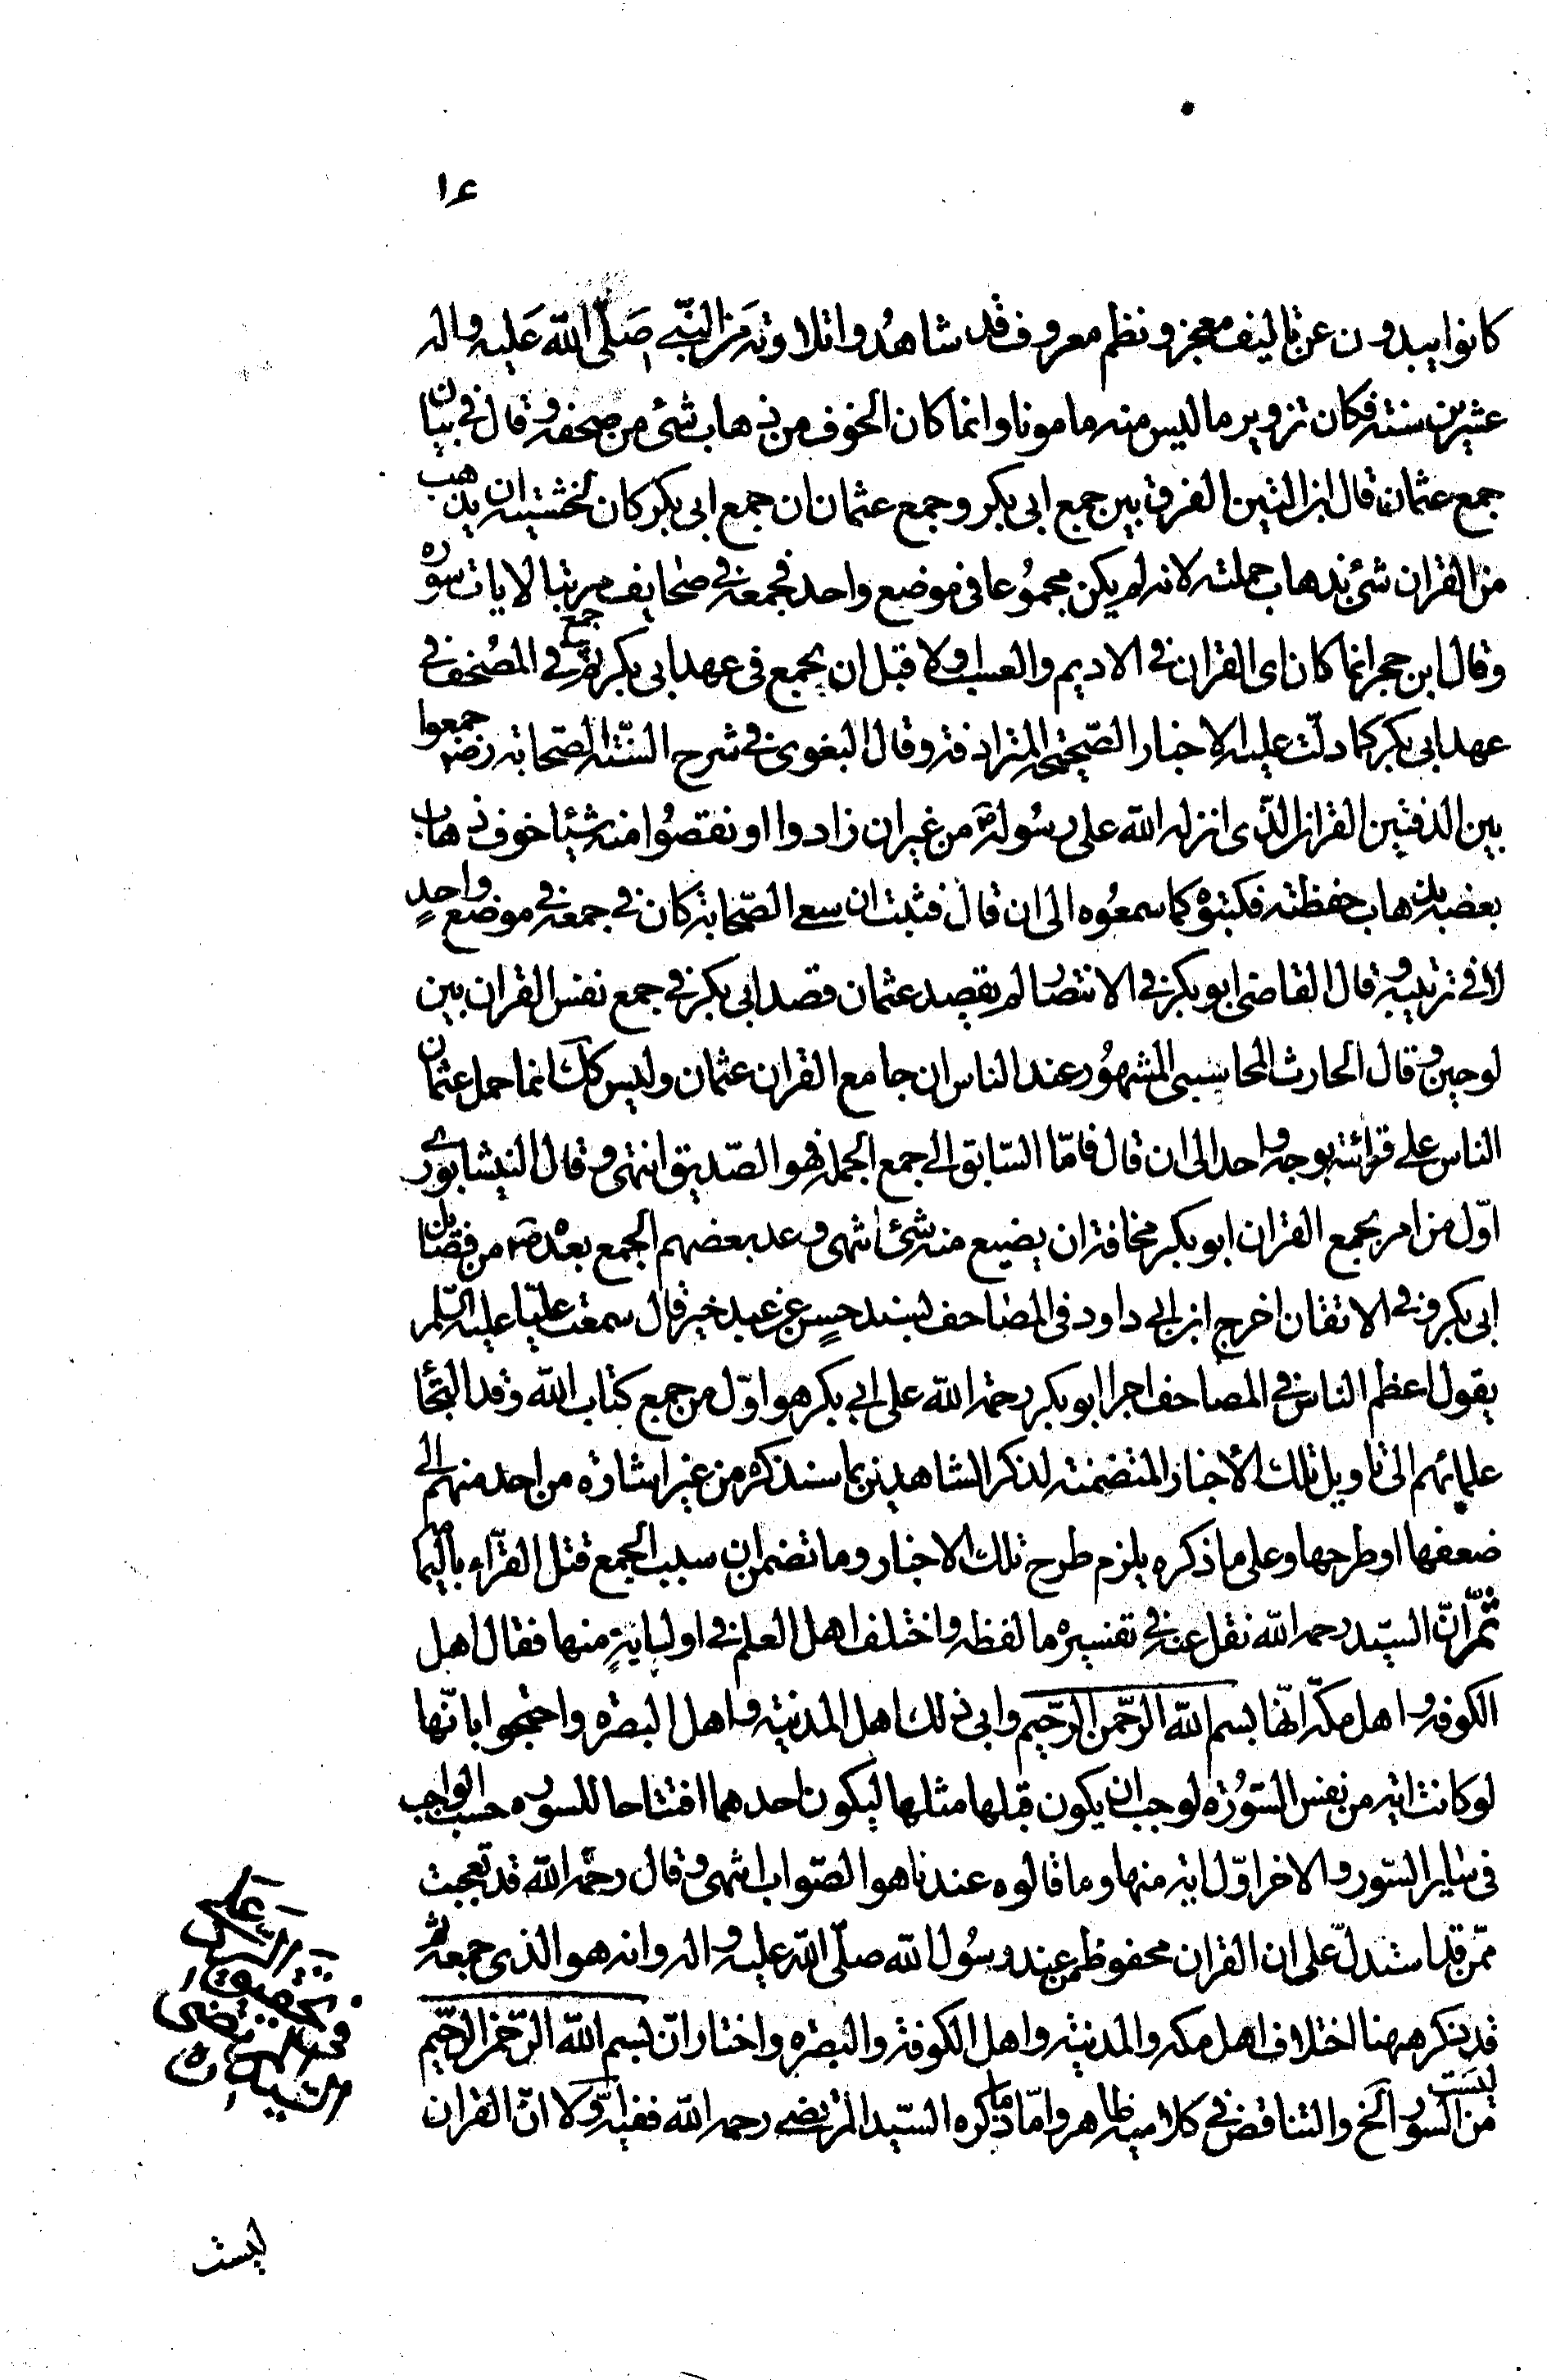 ١٤
كانوا يبدون عن تاليف معجز و نظم معروف قد شاهدوا تلاوته من النبي صلى الله عليه واله
عشرين سنة فكان تزوير ما ليس منه مامونا وانما كان الخوف من ذهاب شئ من صحفه و قال في بيان
جمع عثمان قال ابن التين الفرق بين جمع ابى بكر و جمع عثمان ان جمع ابى بكر كان لخشية ان يذهب
من القران شئ بذهاب حملته لانه لم يكن مجموعا في موضع واحد فجمعه في صحايف مرتبا لايات سوره
وقال ابن حجر انما كان اى القران في الاديم والعسب اولا قبل ان يجمع في عهد ابى بكر ثم جمع في المصحف في
عهد ابى بكر كما دلت عليه الاخبار الصحيحة المترادفة و قال البغوى في شرح السنة الصحابة رض جمعوا
بين الدفتين القران الذى انزله الله على رسوله ص من غير ان زادوا او نقصوا منه شيئا خوف ذهاب
بعضه بذهاب حفظته فكتبوه كما سمعوه الى ان قال فثبت ان سعى الصحابة كان في جمعه في موضع واحد
لا في ترتيبه و قال القاضى ابو بكر في الانتصار لم يقصد عثمان قصد ابى بكر في جمع نفس القران بين
لوحين و قال الحارث المحاسبى المشهور عند الناس ان جامع القران عثمان وليس كك انما حمل عثمان
الناس على قرائته بوجه واحد الى ان قال فاما السابق الى جمع الجملة فهو الصديق انتهى و قال النيشابورى
اول من امر بجمع القران ابو بكر مخافة ان يضيع منه شئ انتهى و عد بعضهم الجمع بعده ص من فضايل
ابى بكر و في الاتقان اخرج ابن ابى داود في المصاحف بسند حسن عن عبد خير قال سمعت عليا عليه السلم
يقول اعظم الناس في المصاحف اجرا ابو بكر رحمة الله على ابى بكر هو اول من جمع كتاب الله وقد التجأ
علمائهم الى تاويل تلك الأخبار المتضمنة لذكر الشاهدين بما سنذكره من غير اشارة من احد منهم الى
ضعفها او طرحها و على ما ذكره يلزم طرح تلك الاخبار و ما تضمن ان سبب الجمع قتل القراء باليمامة
ثم ان السيد رحمه الله نقل عنه في تفسيره ما لفظه و اختلف اهل العلم في اول اية منها فقال اهل
الكوفة و اهل مكة انها بسم الله الرحمن الرحيم وابى ذلك اهل المدينة و اهل البصره و احتجوا بانها
لو كانت اية من نفس السورة لوجب ان يكون قبلها مثلها ليكون احدهما افتتاحا للسوره حسب الواجب
في ساير السور و الاخر اول اية منها و ما قالوه عندنا هو الصواب انتهى و قال رحمه الله قد تعجبت
ممن قد استدل على ان القران محفوظ من عند رسول الله صلى الله عليه و اله وانه هو الذى جمعه ثم
قد ذكر ههنا اختلاف اهل مكه والمدينة و اهل الكوفة والبصره و اختار ان بسم الله الرحمن الرحيم
ليست
من السور الخ والتناقض في كلاميه ظاهر و اما ما ذكره السيد المرتضى رحمه الله ففيه اولا ان القران
على
تحقيق
ليست